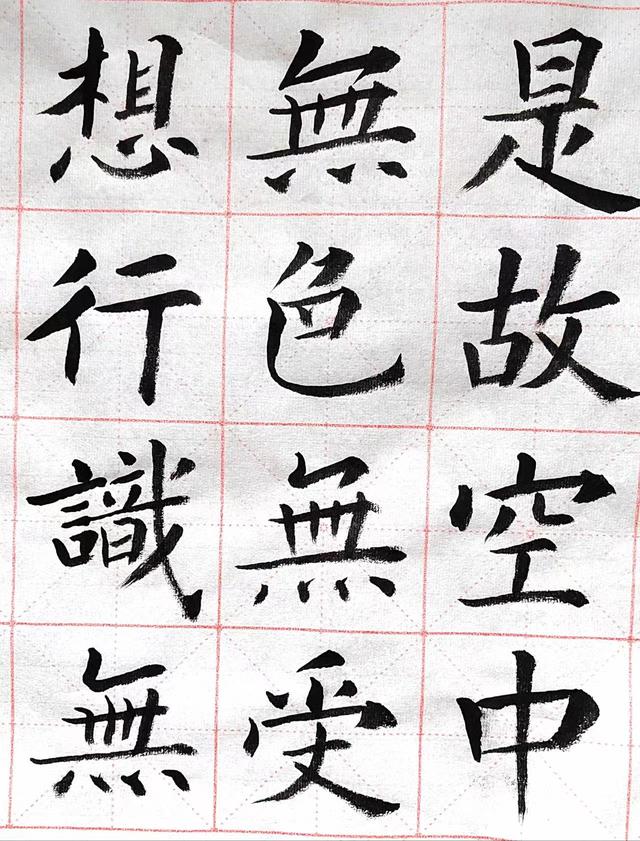 是故空中
無色無受
想行識無